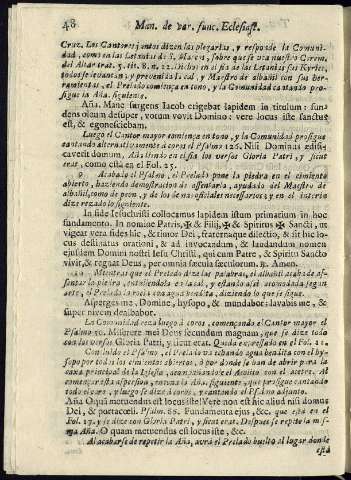 48 Man. de var. func. Eclesiast.
Cruz. Los Cantores juntos dizen las plegarias, y responde la Comuni-
dad, como en las Letanias de S. Marcos, sobre que se vea nuestro Cerem.
del Altar trat. 5. tit. 8. n. 22. dichos en ellas de las Letanias los Kyries,
todos se levantan, y prevenida la cal, y Maestro de albañil con sus her-
ramientas, el Prelado comiença en tono, y la Comunidad cantando pro-
sigue la Aña. siguiente.
Aña. Mane surgens Iacob erigebat lapidem in titulum: fun-
dens oleum desuper, votum vovit Domino: vere locus iste sanctus
est, & ego nesciebam.
Luego el Cantor mayor comiença en tono, y la Comunidad prosigue
cantando alternativamente a coros el Psalmo 126. Nisi Dominus ædifi-
caverit domum, Añadiendo en el fin los versos Gloria Patri, y Sicut
erat, como està en el Fol. 25.
9 Acabado el Psalmo, el Prelado pone la piedra en el cimiento
abierto, haziendo demostracion de assentarla, ayudado del Maestro de
albañil, como de peon, y de los demas oficiales necessarios; y en el interin
dize rezado lo siguiente.
In fide Iesu Christi collocamus lapidem istum primarium in hoc
fundamento. In nomine Patris, ✠ & Filij, ✠ & Spiritus ✠ Sancti, ut
vigeat vera fides hic, & timor Dei, fraternaque dilectio, & sit hic lo-
cus destinatus orationi, & ad invocandum, & laudandum nomen
ejusdem Domini nostri Iesu Christi, qui cum Patre, & Spiritu Sancto
vivit, & regnat Deus, per omnia sæcula sæculorum. ℟. Amen.
Mientras que el Prelado dize las palabras, el albañil acabarà de assen-
tar la piedra, entendiendola en la cal, y estando assi acomodada segun
arte, el Prelado la rocia con agua bendita, diziendo lo que se sigue.
Asperges me, Domine, hyssopo, & mundabor: lavabis me, &
super nivem dealbabor.
La Comunidad reza luego à coros, comenzando el Cantor mayor el
Psalmo 50. Miserere mei Deus secundum magnam, que se dize todo
con los versos Gloria Patri, y sicut erat. Queda expressado en el Fol. 22.
Concluido el Psalmo, el Prelado va echando agua bendita con el hy-
sopo por todos los cimientos abiertos, ò por donde se han de abrir para la
caxa principal de la Iglesia, acompañandole el Acolito con el acetre. Al
començar esta aspersion, entona la Aña. siguiente, que prosigue cantando
todo el coro, y luego se dize à coros, y cantando el Psalmo adjunto.
Aña O quã metuendus est locus iste! Vere non est hic aliud nisi domus
Dei, & porta cœli. Psalm. 86. Fundamenta ejus, &c. que està en el
Fol. 17. y se dize con Gloria Patri, y sicut erat. Despues se repite la mis-
ma Aña. O quam metuendus est locus iste, &c.
Al acabarse de repetir la Aña, avrà el Prelado buelto al lugar donde
està